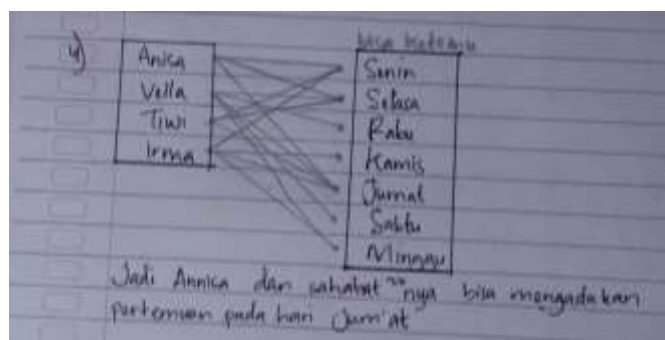 4)
bisa ketemu
Anisa
Vella
Tiwi
Irma
Senin
Selasa
Rabu
Kamis
Jumat
Sabtu
Minggu
Jadi Annisa dan sahabat"nya bisa mengadakan
pertemuan pada hari Jum'at